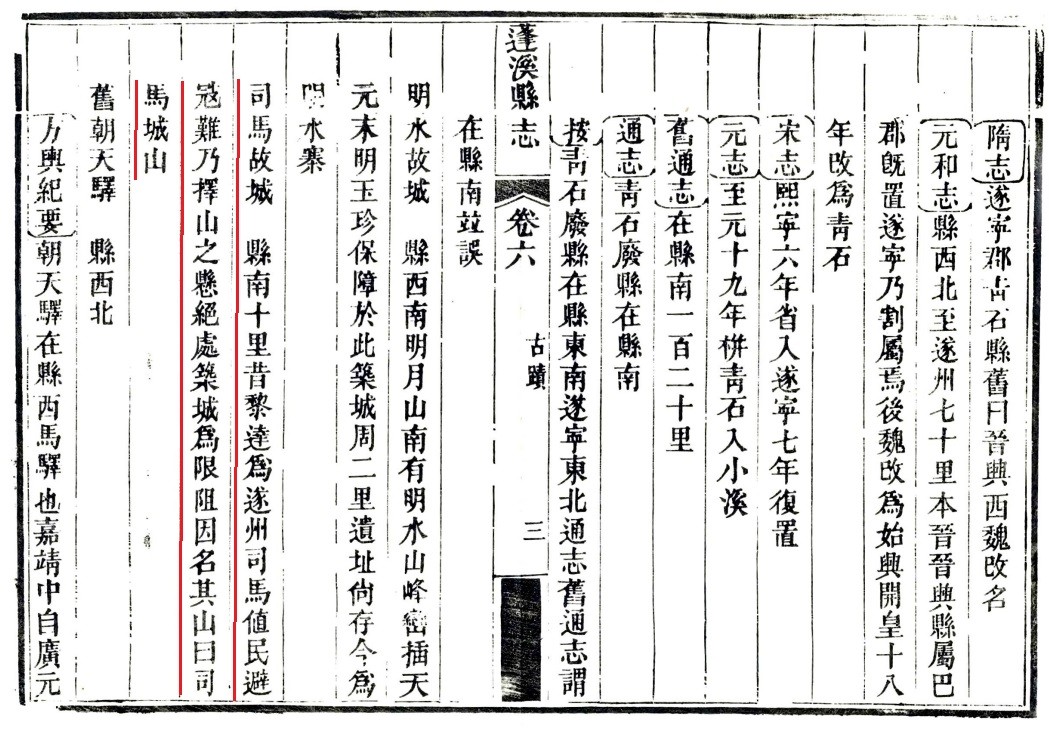 隋志遂寧郡靑石縣舊曰晉興西魏改名
元和志縣西北至遂州七十里本晉晉興縣屬巴
郡旣置遂寧乃割屬焉後魏改爲始興開皇十八
年改爲靑石
宋志熙寧六年省入遂寧七年復置
元志至元十九年倂靑石入小溪
舊通志在縣南一百二十里
通志靑石廢縣在縣南
按靑石廢縣在縣東南遂寧東北通志舊通志謂
蓬溪縣志 卷六 古蹟 三
在縣南竝誤
明水故城 縣西南明月山南有明水山峰巒插天
元末明玉珍保障於此築城周二里遺址尙存今爲
明水寨
司馬故城 縣南十里昔黎達爲遂州司馬値民避
冦難乃擇山之懸絕處築城爲限阻因名其山曰司
馬城山
舊朝天驛 縣西北
方輿紀要朝天驛在縣西馬驛也嘉靖中自廣元